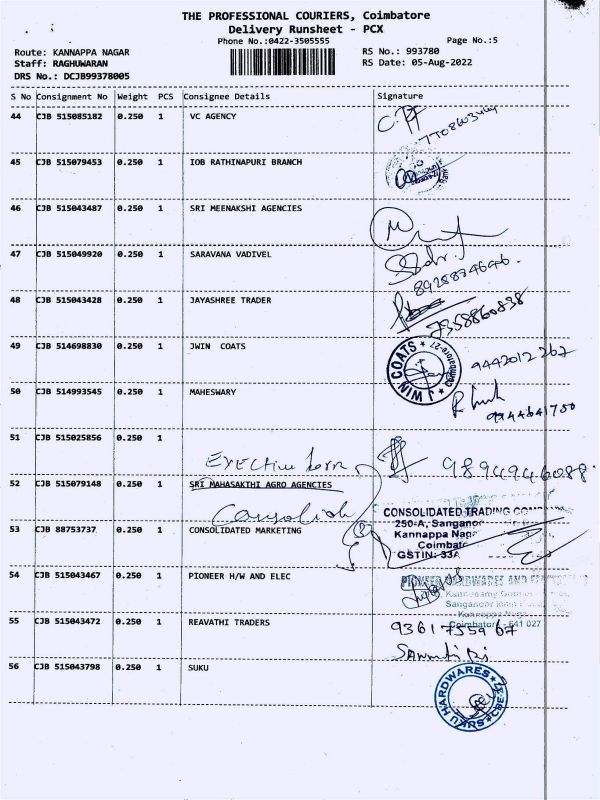 THE PROFESSIONAL COURIERS, Coimbatore
Delivery Runsheet - PCX
Phone No.:0422-3505555
Page No.:5
Route: KANNAPPA NAGAR
RS No.: 993780
Staff: RAGHUWARAN
RS Date: 05-Aug-2022
DRS No.: DCJB99378005
S No Consignment No Weight PCS Consignee Details Signature
44 CJB 515085182 0.250 1 VC AGENCY
45 CJB 515079453 0.250 1 IOB RATHINAPURI BRANCH
46 CJB 515043487 0.250 1 SRI MEENAKSHI AGENCIES
47 CJB 515049920 0.250 1 SARAVANA VADIVEL
8928874646.
48 CJB 515043428 0.250 1 JAYASHREE TRADER
7358860838
49 CJB 514698830 0.250 1 JWIN COATS
J WIN COATS ★ Coimbatore-27 ★
9442012262
50 CJB 514993545 0.250 1 MAHESWARY
9944641750
51 CJB 515025856 0.250 1
9894946088.
52 CJB 515079148 0.250 1 SRI MAHASAKTHI AGRO AGENCIES
CONSOLIDATED TRADING
250-A, Sanganoor
Kannappa Nagar
Coimbatore
GSTIN: 33A
53 CJB 88753737 0.250 1 CONSOLIDATED MARKETING
54 CJB 515043467 0.250 1 PIONEER H/W AND ELEC
PIONEER HARDWARES AND
Kannusamy
Sanganoor
Kannappa Nagar
Coimbatore - 641 027
55 CJB 515043472 0.250 1 REAVATHI TRADERS
9361735967
56 CJB 515043798 0.250 1 SUKU
SUKU HARDWARES ★ CBE-27 ★